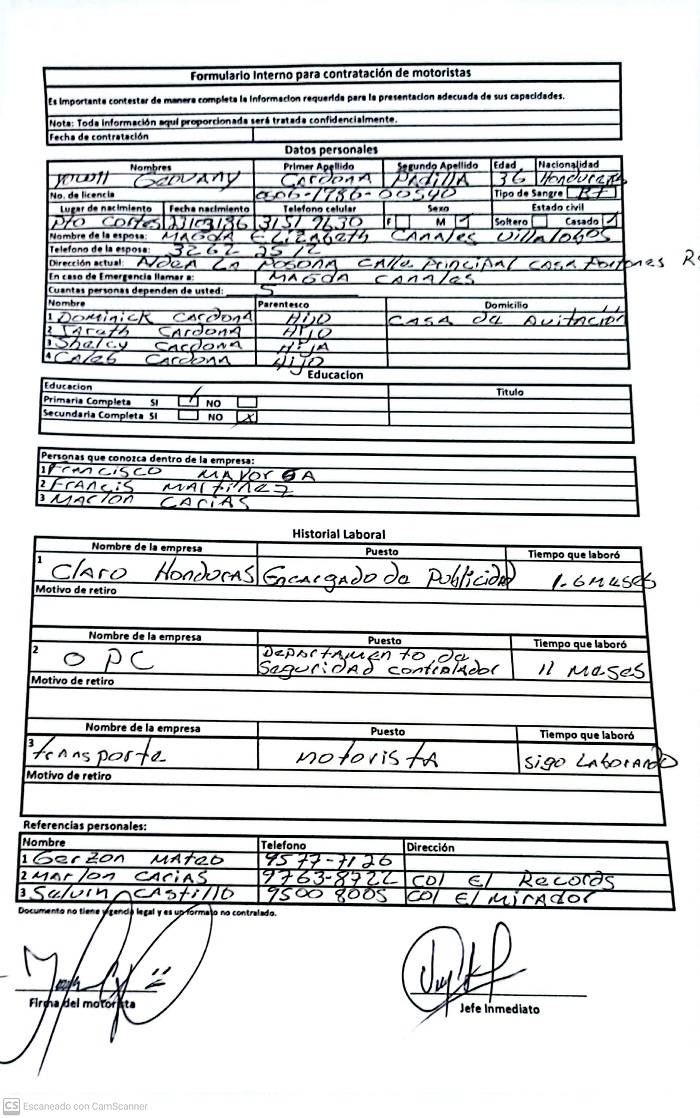 Formulario Interno para contratación de motoristas
Es Importante contestar de manera completa la Informacion requerida para la presentacion adecuada de sus capacidades.
Nota: Toda información aquí proporcionada será tratada confidencialmente.
Fecha de contratación
Datos personales
Nombres Primer Apellido Segundo Apellido Edad Nacionalidad
Geovany Cardona Padilla 36 Hondureña
No. de licencia 0506-1986-00540 Tipo de Sangre B+
Lugar de nacimiento Fecha nacimiento Telefono celular Sexo Estado civil
Pto Cortes 23/03/86 3157 9630 F M Soltero Casado
Nombre de la esposa: Magda Elizabeth Canales Villalobos
Telefono de la esposa: 3262 2512
Dirección actual: Aldea La Posona Calle Principal casa Portones
En caso de Emergencia llamar a: Magda Canales
Cuantas personas dependen de usted: 5
Nombre Parentesco Domicilio
1 Dominick Cardona Hijo Casa de Avitación
2 Sarath Cardona Hijo
3 Shalcy Cardona Hija
4 Caleb Cardona Hijo
Educacion
Educacion Titulo
Primaria Completa SI NO
Secundaria Completa SI NO X
Personas que conozca dentro de la empresa:
1 Francisco Mayorga
2 Francis Martinez
3 Marlon Carias
Historial Laboral
Nombre de la empresa Puesto Tiempo que laboró
1 Claro Honduras Encargado de Publicidad 1.6 meses
Motivo de retiro
Nombre de la empresa Puesto Tiempo que laboró
2 OPC Departamento de Seguridad controlador 11 meses
Motivo de retiro
Nombre de la empresa Puesto Tiempo que laboró
3 transporte motorista sigo Laborando
Motivo de retiro
Referencias personales:
Nombre Telefono Dirección
1 Gerzon Mateo 9577-7126
2 Marlon Carias 9763-8722 Col El Records
3 Selvin Castillo 9500 8005 Col El Mirador
Documento no tiene vigencia legal y es un formato no contralado.
Firma del motorista
Jefe Inmediato
CS Escaneado con CamScanner